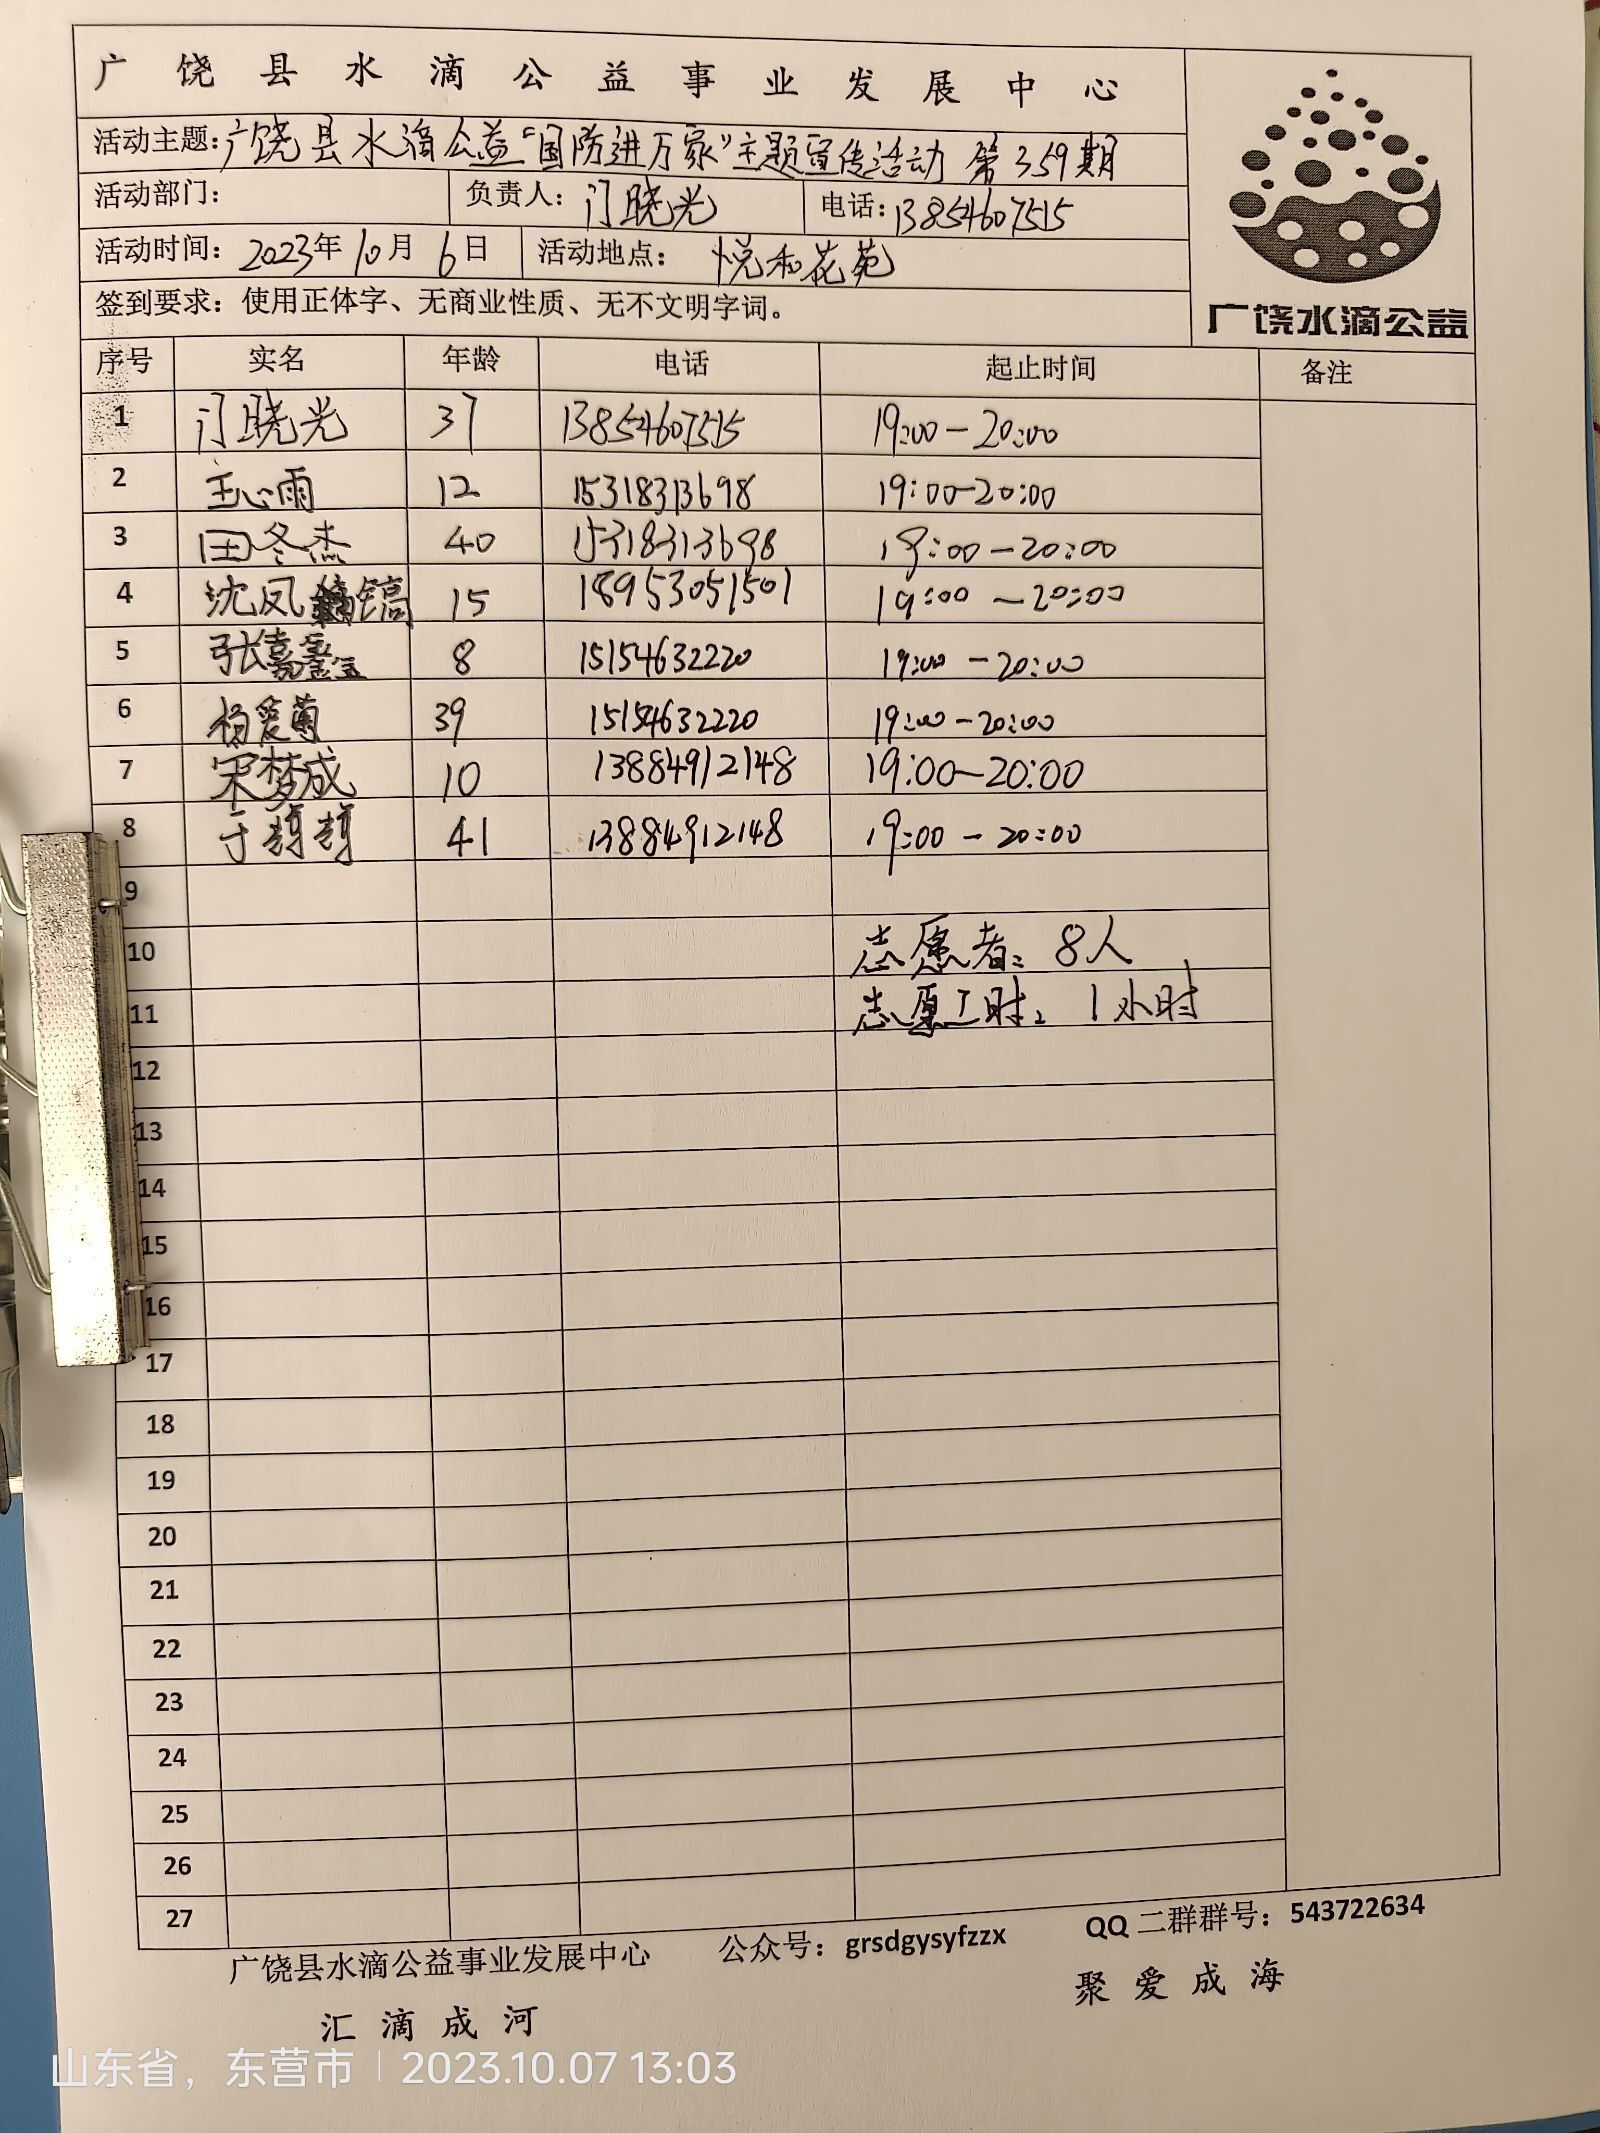 广饶县水滴公益事业发展中心
活动主题：广饶县水滴公益“国防进万家”主题宣传活动 第359期
活动部门： 负责人：门晓光 电话：13854607515
活动时间：2023年10月6日 活动地点：悦和花苑
签到要求：使用正体字、无商业性质、无不文明字词。
广饶水滴公益
序号 实名 年龄 电话 起止时间 备注
1 门晓光 37 13854607515 19:00-20:00
2 王心雨 12 15318313698 19:00-20:00
3 田冬杰 40 15318313698 19:00-20:00
4 沈凤镐 15 18953051501 19:00-20:00
5 张嘉鑫 8 15154632220 19:00-20:00
6 杨爱菊 39 15154632220 19:00-20:00
7 宋梦成 10 13884912148 19:00-20:00
8 于 41 13884912148 19:00-20:00
9
10 志愿者：8人
11 志愿工时：1小时
12
13
14
15
16
17
18
19
20
21
22
23
24
25
26
27
广饶县水滴公益事业发展中心 公众号：grsdgysyfzzx QQ二群群号：543722634
汇滴成河 聚爱成海
山东省，东营市 | 2023.10.07 13:03